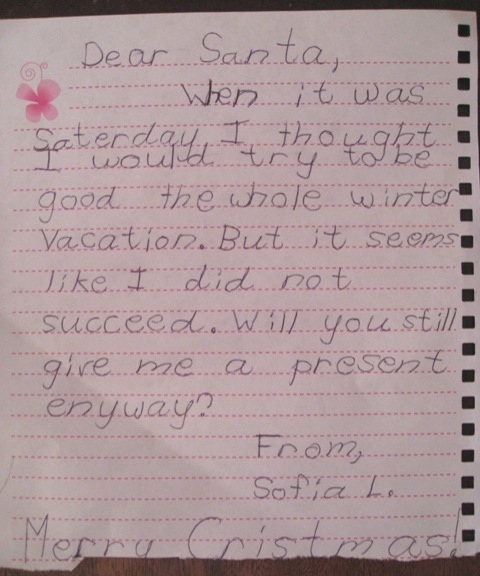 Dear Santa,
When it was
Saterday, I thought
I would try to be
good the whole winter
vacation. But it seems
like I did not
succeed. Will you still
give me a present
enyway?
From,
Sofia L.
Merry Cristmas!